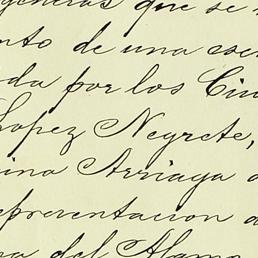 que se
nto de una
da por los Ciu
Lopez Negrete,
ina Arriaga
epresentacion
del Alamo